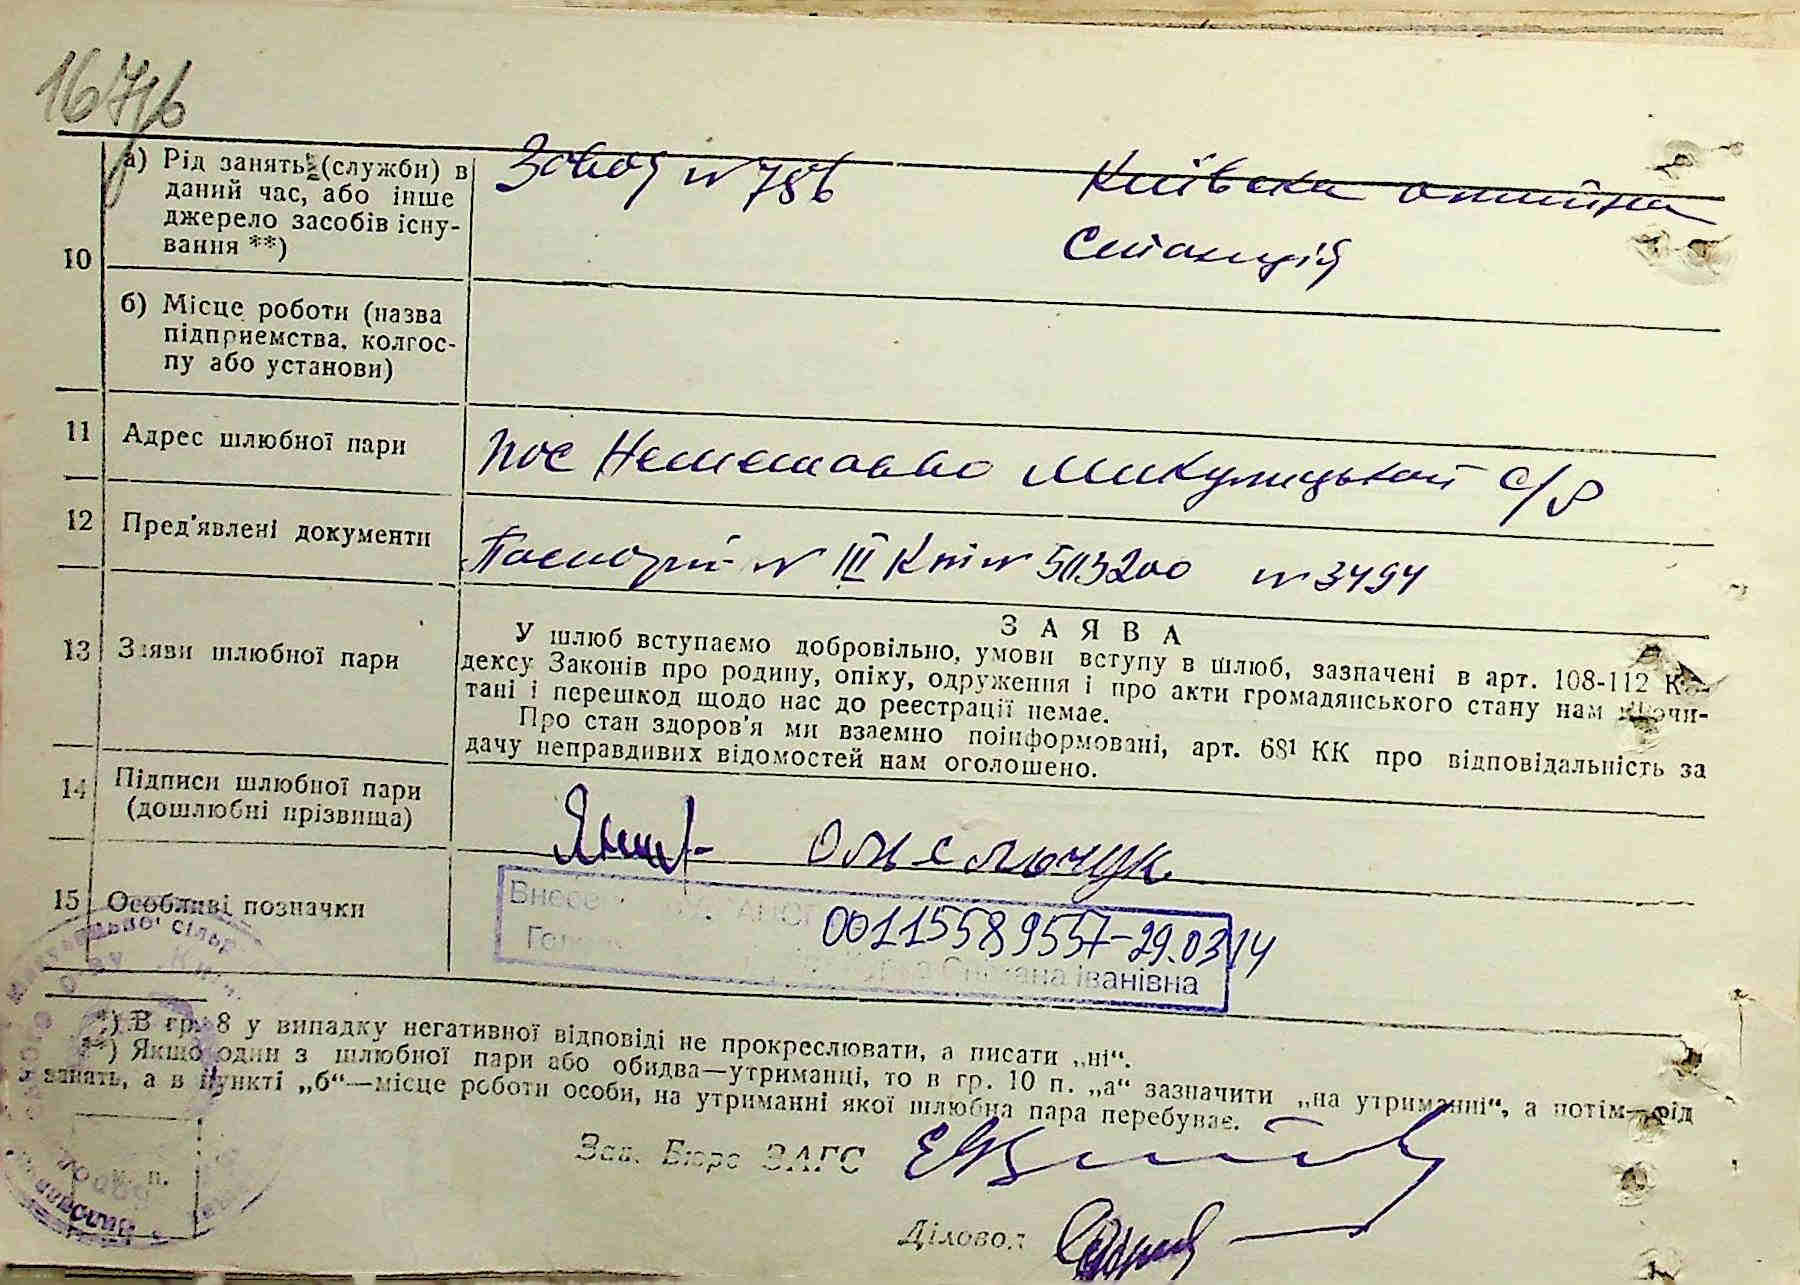 167/6
10
а) Рід занять (служби) в
даний час, або інше
джерело засобів існу-
вання **)
Завод № 786
Київська
станція
б) Місце роботи (назва
підприємства, колгос-
пу або установи)
11 Адрес шлюбної пари
пос Немешаєво Микулицької с/р
12 Пред'явлені документи
Паспорти № III 503200 № 3494
13 Заяви шлюбної пари
ЗАЯВА
У шлюб вступаємо добровільно, умови вступу в шлюб, зазначені в арт. 108-112 Ко-
дексу Законів про родину, опіку, одруження і про акти громадянського стану нам прочи-
тані і перешкод щодо нас до реєстрації немає.
Про стан здоров'я ми взаємно поінформовані, арт. 68¹ КК про відповідальність за
дачу неправдивих відомостей нам оголошено.
14 Підписи шлюбної пари
(дошлюбні прізвища)
Омельчук
15 Особливі позначки
00115589557-29.03.14
Іванівна
*) В гр. 8 у випадку негативної відповіді не прокреслювати, а писати „ні“.
**) Якщо один з шлюбної пари або обидва—утриманці, то в гр. 10 п. „а“ зазначити „на утриманні“, а потім—рід
занять, а в пункті „б“—місце роботи особи, на утриманні якої шлюбна пара перебуває.
Зав. Бюро ЗАГС
Діловод